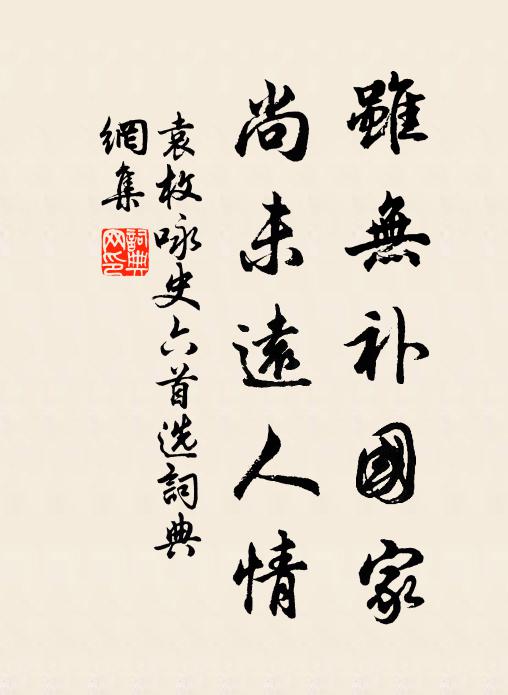 雖無补國家
尚未遠人情
袁枚咏史六首选詞典
網集
詞典
网印